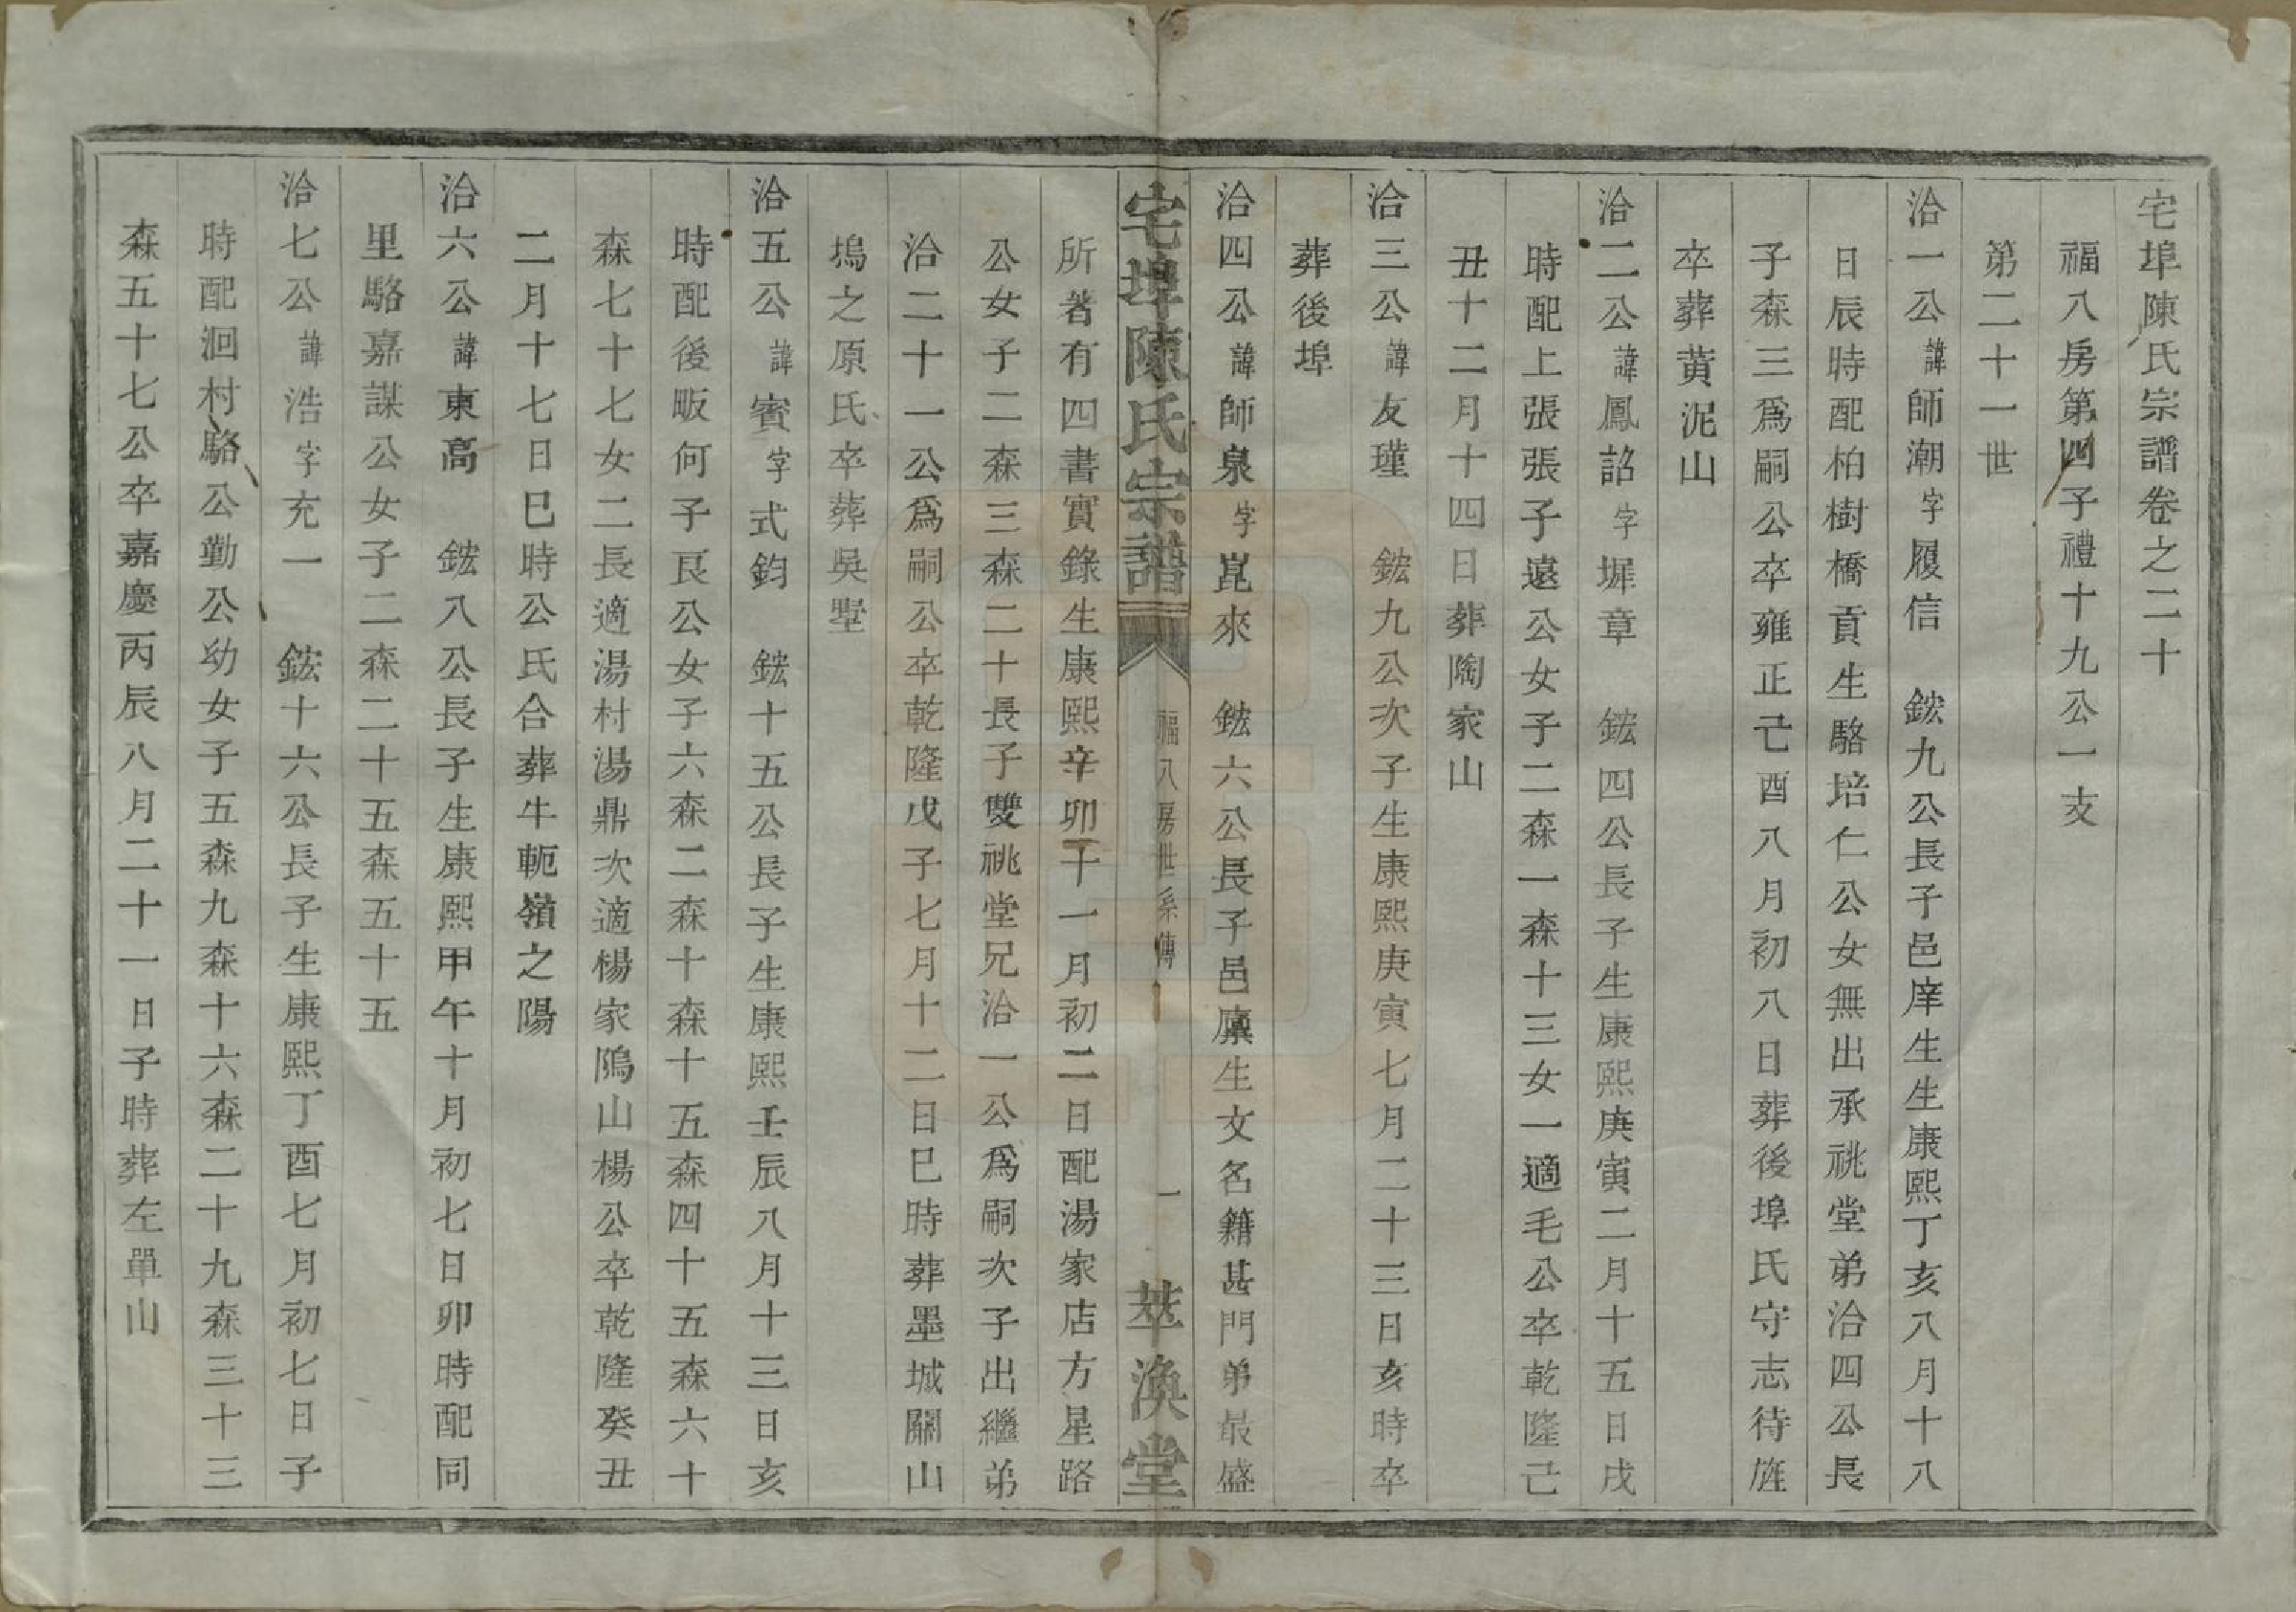 宅埠陳氏宗譜卷之二十
福八房第四子禮十九公一支
第二十一世
洽一公諱師潮字履信　鋐九公長子邑庠生生康熙丁亥八月十八
日辰時配柏樹橋貢生駱培仁公女無出承祧堂弟洽四公長
子森三爲嗣公卒雍正己酉八月初八日葬後埠氏守志待旌
卒葬黄泥山
洽二公諱鳳詔字墀章　鋐四公長子生康熙庚寅二月十五日戌
時配上張張子遠公女子二森一森十三女一適毛公卒乾隆己
丑十二月十四日葬陶家山
洽三公諱友瑾　鋐九公次子生康熙庚寅七月二十三日亥時卒
葬後埠
洽四公諱師泉字崑來　鋐六公長子邑廩生文名籍甚門弟最盛
宅埠陳氏宗譜　福八房世系傳　一　萃渙堂
所著有四書實錄生康熙辛卯十一月初二日配湯家店方星路
公女子二森三森二十長子雙祧堂兄洽一公爲嗣次子出繼弟
洽二十一公爲嗣公卒乾隆戊子七月十二日巳時葬墨城關山
塢之原氏卒葬吳墅
洽五公諱賓字式鈞　鋐十五公長子生康熙壬辰八月十三日亥
時配後畈何子良公女子六森二森十森十五森四十五森六十
森七十七女二長適湯村湯鼎次適楊家隖山楊公卒乾隆癸丑
二月十七日巳時公氏合葬牛軛嶺之陽
洽六公諱東高　鋐八公長子生康熙甲午十月初七日卯時配同
里駱嘉謀公女子二森二十五森五十五
洽七公諱浩字充一　鋐十六公長子生康熙丁酉七月初七日子
時配洄村駱公勤公幼女子五森九森十六森二十九森三十三
森五十七公卒嘉慶丙辰八月二十一日子時葬左單山